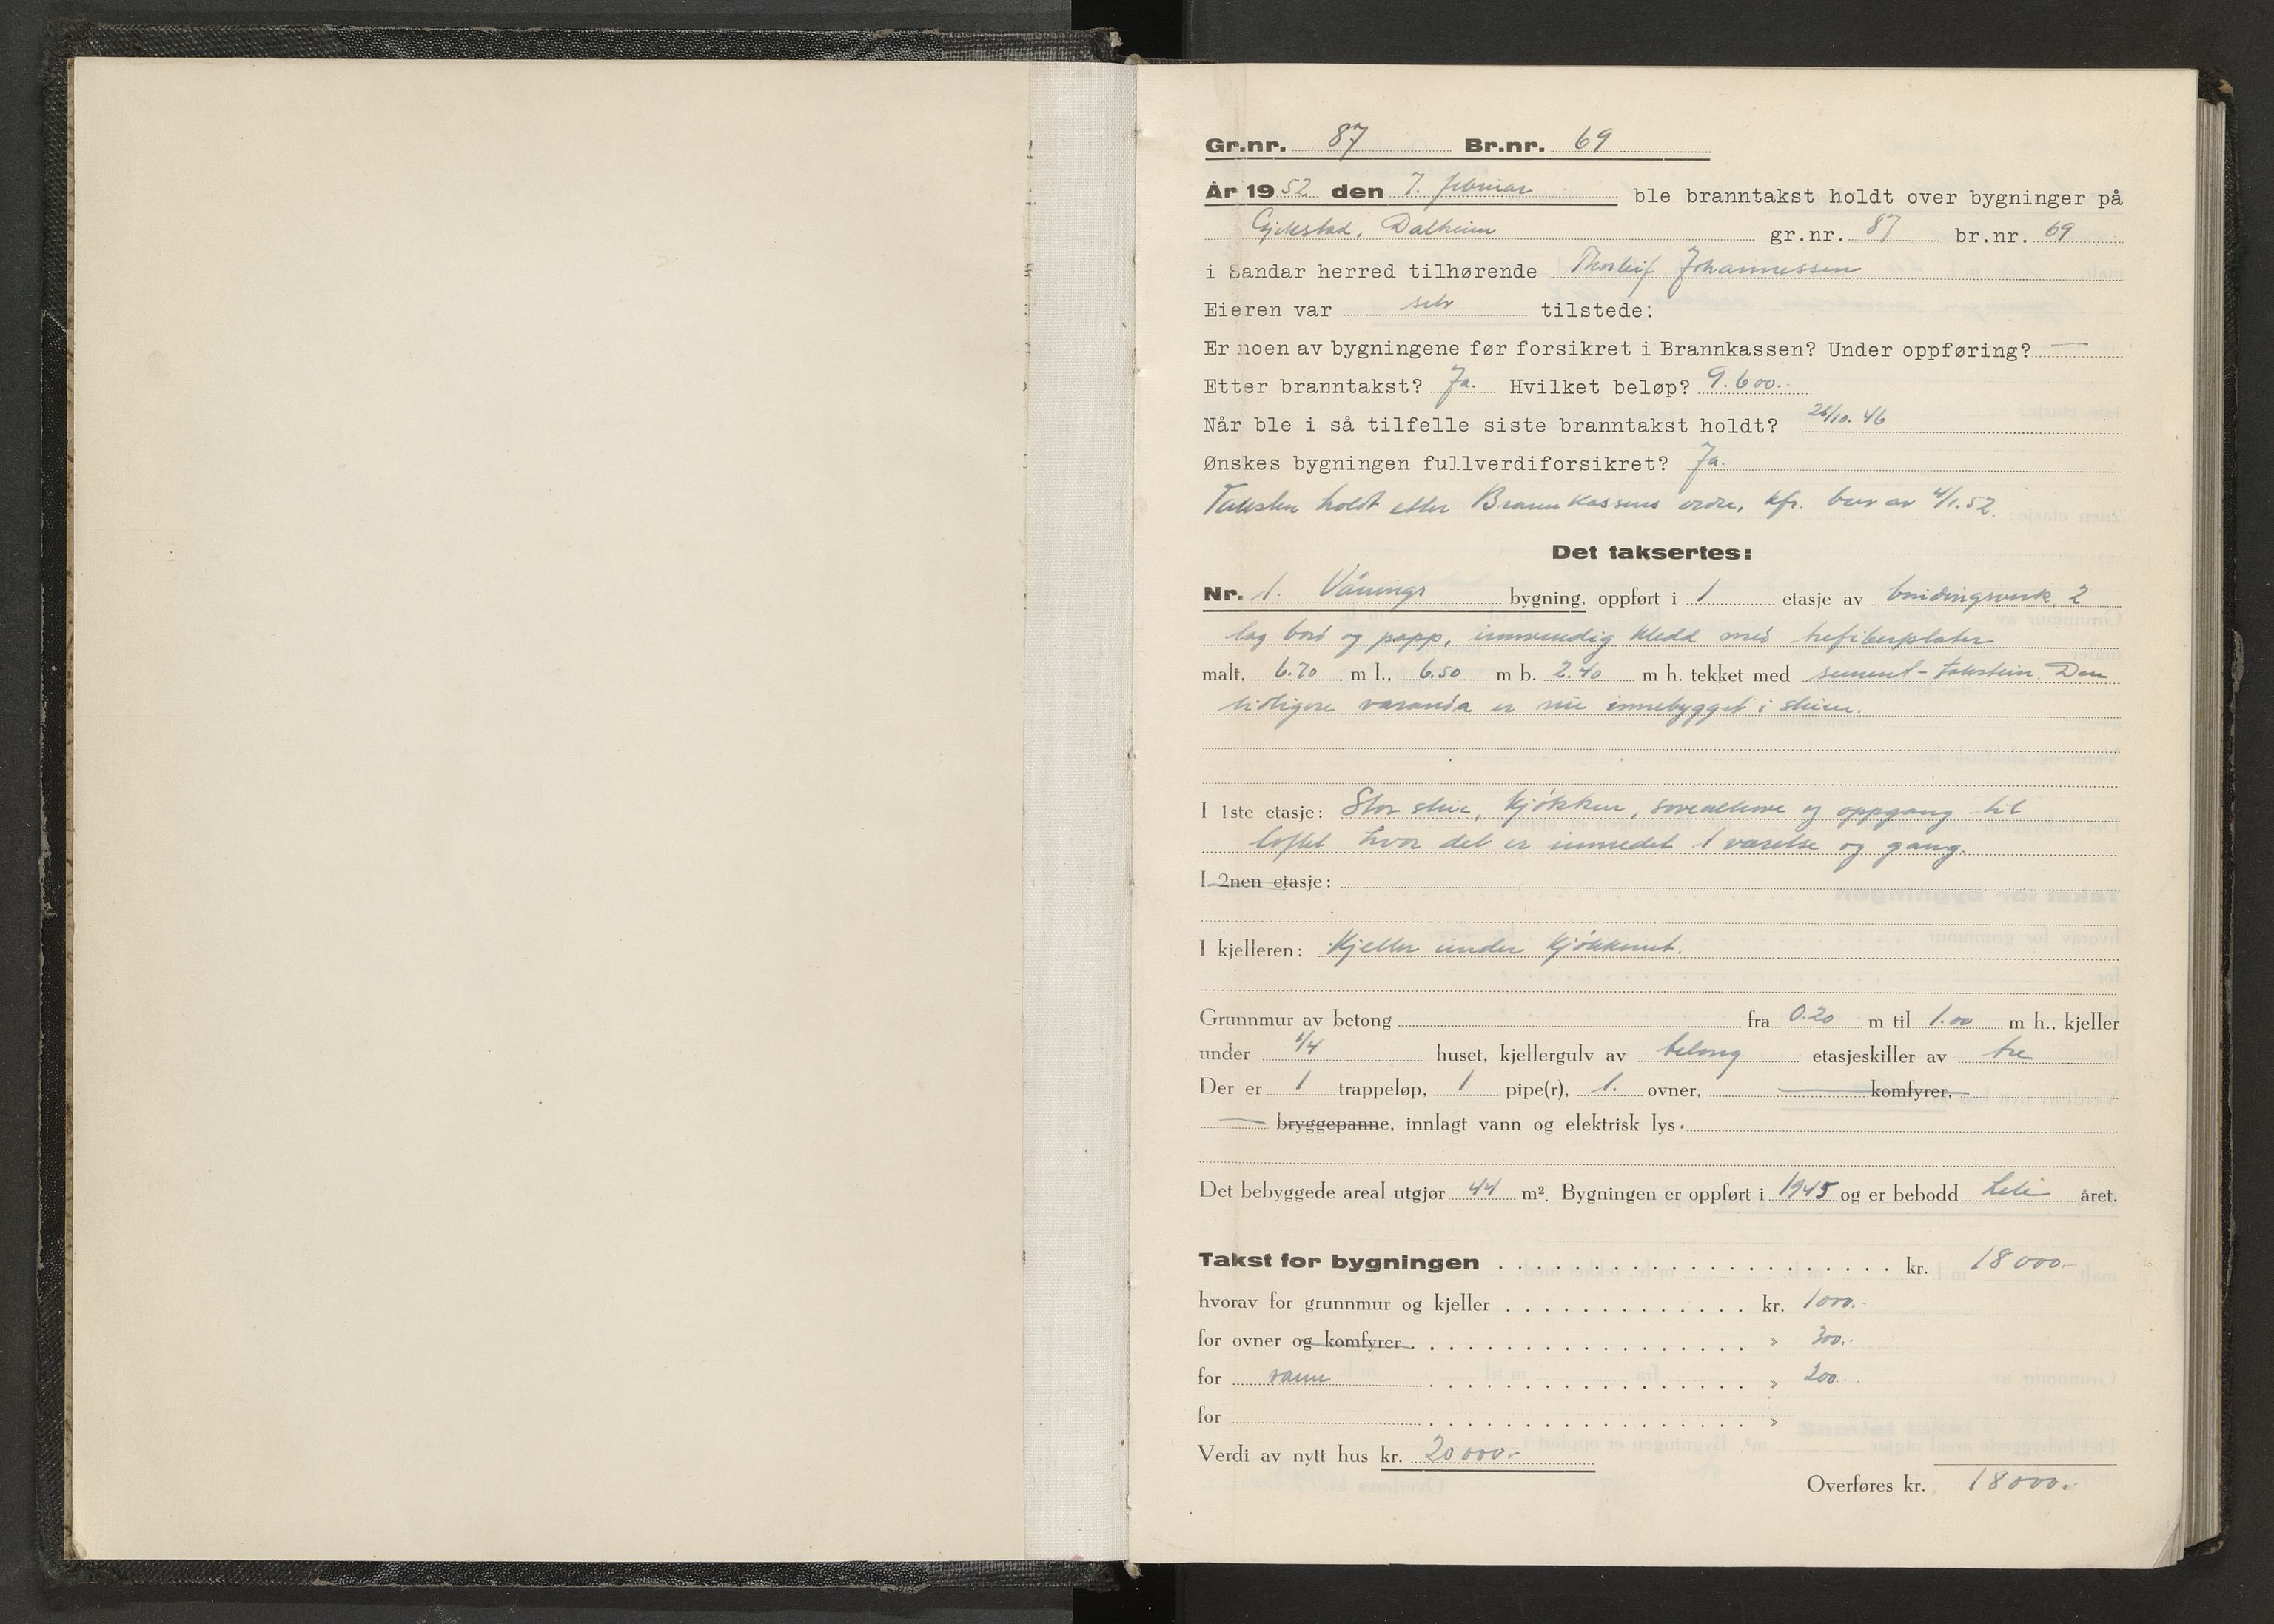 Gr.nr. 87 Br.nr. 69
År 1952 den 7. februar ble branntakst holdt over bygninger på
Gjekstad, Dalheim gr.nr. 87 br.nr. 69
i Sandar herred tilhørende Thorleif Johannessen
Eieren var selv tilstede:
Er noen av bygningene før forsikret i Brannkassen? Under oppføring? —
Etter branntakst? Ja. Hvilket beløp? 9.600.-
Når ble i så tilfelle siste branntakst holdt? 26/10. 46
Ønskes bygningen fullverdiforsikret? Ja.
Taksten holdt etter Brannkassens ordre, kfr. brev av 4/1.52.
Det taksertes:
Nr. 1. Vånings bygning, oppført i 1 etasje av bindingsverk, 2
lag bord og papp, innvendig kledd med trefiberplater
malt, 6.70 m l., 6.50 m b. 2.40 m h. tekket med sement-takstein. Den
tidligere varanda er nu innebygget i stuen.
I 1ste etasje: Stor stue, kjøkken, sovealkove og oppgang til
loftet hvor det er innredet 1 værelse og gang.
I 2nen etasje:
I kjelleren: Kjeller under kjøkkenet.
Grunnmur av betong fra 0.20 m til 1.00 m h., kjeller
under 1/4 huset, kjellergulv av betong etasjeskiller av tre
Der er 1 trappeløp, 1 pipe(r), 1. ovner, — komfyrer,
— bryggepanne, innlagt vann og elektrisk lys.
Det bebyggede areal utgjør 44 m². Bygningen er oppført i 1945 og er bebodd hele året.
Takst for bygningen kr. 18000.-
hvorav for grunnmur og kjeller kr. 1000.-
for ovner og komfyrer » 300.-
for vann » 200.-
for »
Verdi av nytt hus kr. 20000.-
Overføres kr. 18000.-